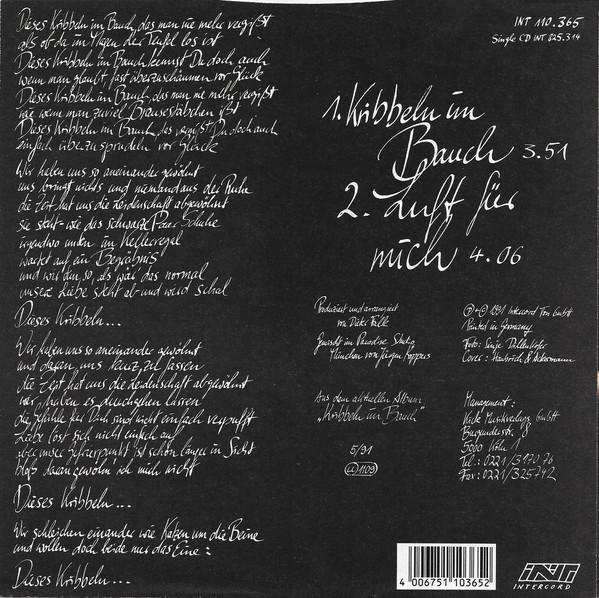 Dieses Kribbeln im Bauch, das man nie mehr vergißt
als ob da im Magen der Teufel los ist
Dieses Kribbeln im Bauch kennst Du doch auch
wenn man glaubt, fast überzuschäumen vor Glück
Dieses Kribbeln im Bauch, das man nie mehr vergißt
wie wenn man zuviel Brausestäbchen ißt
Dieses Kribbeln im Bauch, das vermißt Du doch auch
einfach überzusprudeln vor Glück
Wir haben uns so aneinander gewöhnt
uns bringt nichts und niemand aus der Ruhe
die Zeit hat uns die Leidenschaft abgewöhnt
sie steht wie das schwarze Paar Schuhe
irgendwo unten im Kellerregal
wartet auf ein Begräbnis
und wir tun so, als wär das normal
unsere Liebe steht ab und wird schal
Dieses Kribbeln...
Wir haben uns so aneinander gewöhnt
und daran, uns treu zu lassen
die Zeit hat uns die Leidenschaft abgewöhnt
wir haben es geschehen lassen
die Gefühle für Dich sind nicht einfach verpufft
Liebe löst sich nicht einfach auf
aber unser Gefrierpunkt ist schon länger in Sicht
bloß daran gewöhn ich mich nicht
Dieses Kribbeln...
Wir schleichen einander wie Katzen um die Beine
und wollen doch beide nur das Eine:
Dieses Kribbeln...
INT 110.365
Single CD INT 825.314
1. Kribbeln im
Bauch 3.51
2. Luft für
mich 4.06
Produziert und arrangiert
von Dieter Falk
Gemischt im Paradise Studio
München von Jürgen Koppers
Aus dem aktuellen Album
„Kribbeln im Bauch"
5/91
LC 1109
℗+© 1991 Intercord Ton GmbH
Printed in Germany
Foto: Sinje Dillenkofer
Cover: &
Management:
Kick Musikverlag GmbH
Burgunderstr. 8
5000 Köln 1
Tel.: 0221/317076
Fax: 0221/325742
4 006751 103652
INT
INTERCORD